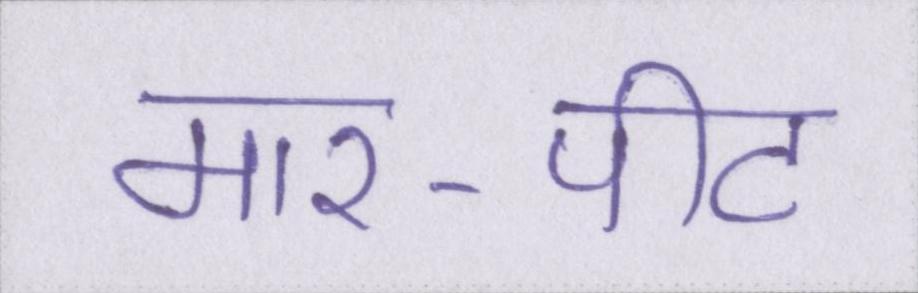 मार-पीट